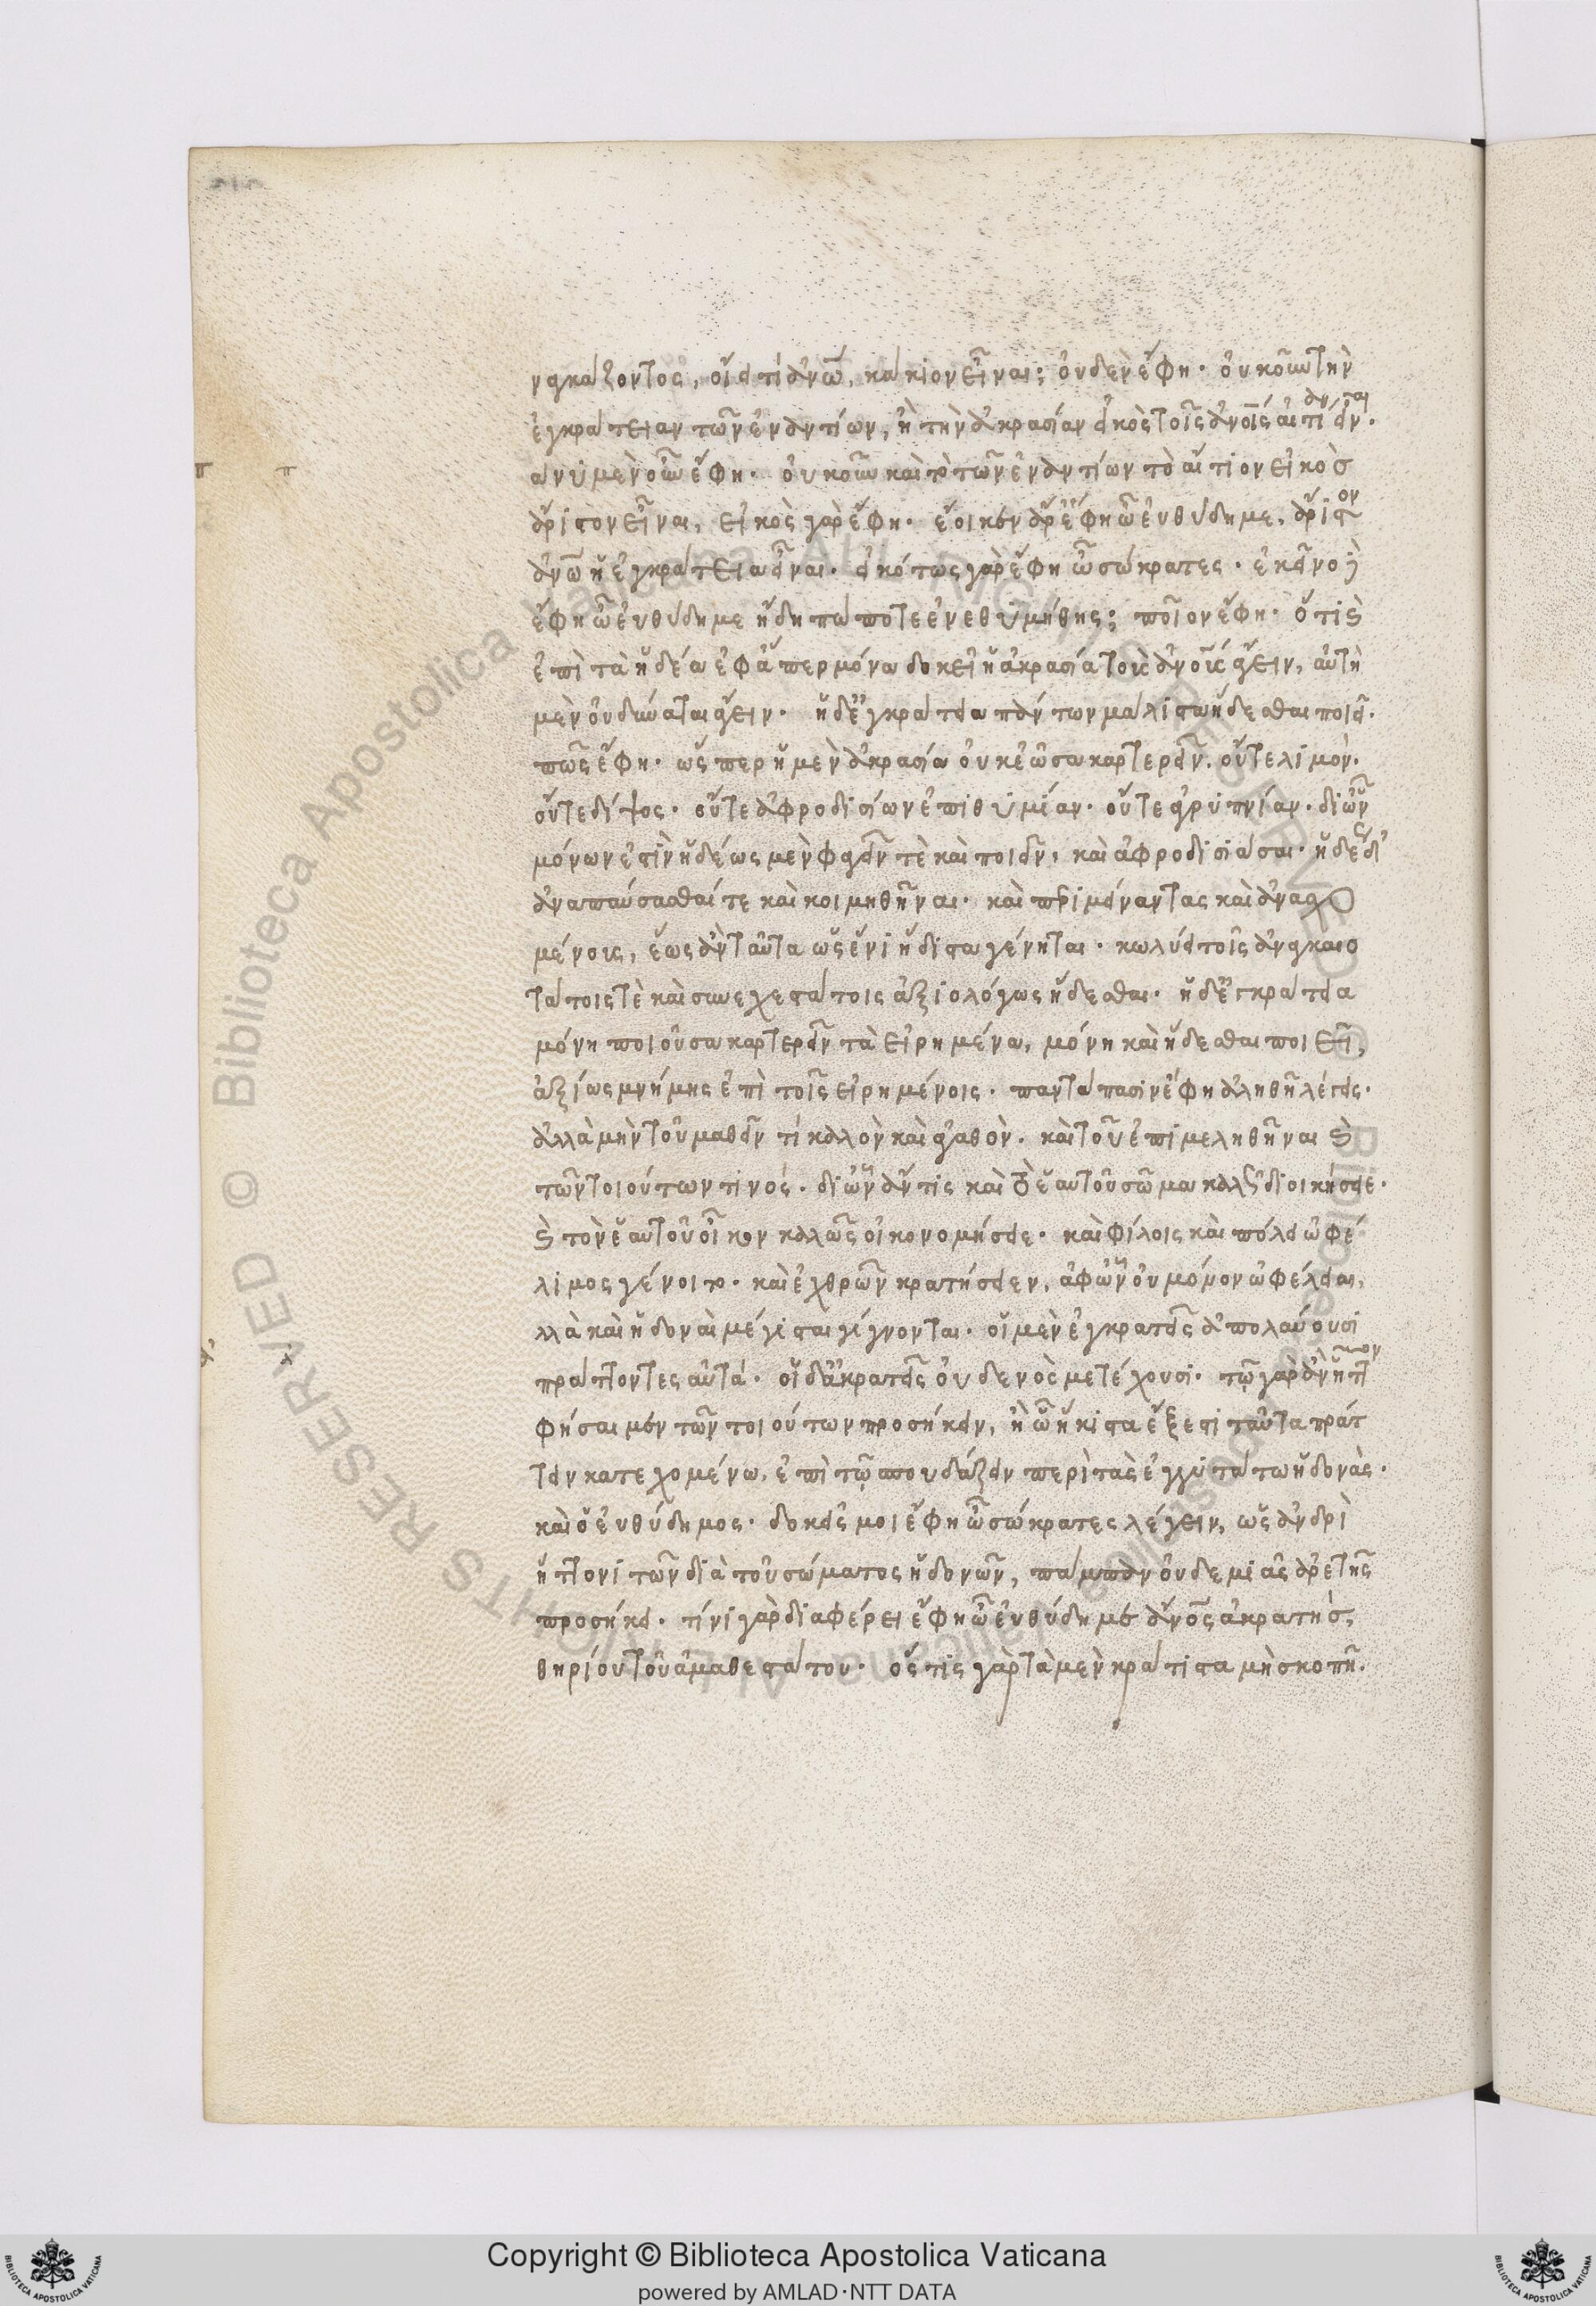 ναγκάζοντος, οἴει τί ἀνῶ, κάκιον εἶναι; οὐδὲν ἔφη. οὐκοῦν τὴν
ἐγκράτειαν τῶν ἐναντίων, ἢ τὴν ἀκρασίαν εἰκὸς τοῖς ἀνοῖς αἰτίαν εἶναι.
πάνυ μὲν οὖν ἔφη. οὐκοῦν καὶ τὸ τῶν ἐναντίων τὸ αἴτιον εἰκὸς
ἄριστον εἶναι, εἰκὸς γὰρ ἔφη. ἔοικεν ἄρ ἔφη ὦ ἐυθύδημε, ἄριστον
ἀνῶ ἡ ἐγκράτεια εἶναι. εἰκότως γὰρ ἔφη ὦ σώκρατες. ἐκεῖνο δὲ
ἔφη ὦ ἐυθύδημε ἤδη πώποτε ἐνεθυμήθης; ποῖον ἔφη. ὅτι καὶ
ἐπὶ τὰ ἡδέα ἐφ ἅπερ μόνα δοκεῖ ἡ ἀκρασία τοὺς ἀνοὺς ἄγειν, αὐτὴ
μὲν οὐ δύναται ἄγειν. ἡ δ' ἐγκράτεια πάντων μάλιστα ἥδεσθαι ποιεῖ.
πῶς ἔφη. ὥσπερ ἡ μὲν ἀκρασία οὐκ ἐῶσα καρτερεῖν. οὔτε λιμὸν.
οὔτε δίψος. οὔτε ἀφροδισίων ἐπιθυμίαν. οὔτε ἀγρυπνίαν. δι ὧν
μόνων ἐστὶν ἡδέως μὲν φαγεῖν τὲ καὶ ποιεῖν, καὶ ἀφροδισιάσαι. ἡδέως δ'
ἀναπαύσασθαί τε καὶ κοιμηθῆναι. καὶ περιμείναντας καὶ ἀνασχο
μένοις, ἕως ἂν ταῦτα ὡς ἔνι ἥδιστα γένηται. κωλύει τοῖς ἀναγκαιο
τάτοις τὲ καὶ συνεχεστάτοις ἀξιολόγως ἥδεσθαι. ἡ δ' ἐγκράτεια
μόνη ποιοῦσα καρτερεῖν τὰ εἰρημένα, μόνη καὶ ἥδεσθαι ποιεῖ,
ἀξίως μνήμης ἐπὶ τοῖς εἰρημένοις. παντάπασιν ἔφη ἀληθῆ λέγεις.
ἀλλὰ μὴν τοῦ μαθεῖν τί καλὸν καὶ ἀγαθὸν. καὶ τοῦ ἐπιμεληθῆναι καὶ
τῶν τοιούτων τινός. δι ὧν ἄν τις καὶ τὸ ἑαυτοῦ σῶμα καλῶς διοικήσειε.
καὶ τὸν ἑαυτοῦ οἶκον καλῶς οἰκονομήσειε. καὶ φίλοις καὶ πόλει ὠφέ
λιμος γένοιτο. καὶ ἐχθρῶν κρατήσειεν, ἀφ ὧν οὐ μόνον ὠφέλειαι,
ἀλλὰ καὶ ἡδοναὶ μέγισται γίγνονται. οἱ μὲν ἐγκρατεῖς ἀπολαύουσι
πράττοντες αὐτά. οἱ δ' ἀκρατεῖς οὐδενὸς μετέχουσι. τῷ γὰρ ἂν ἧττον
φήσαιμεν τῶν τοιούτων προσήκειν, ἢ ᾧ ἥκιστα ἔξεστι ταῦτα πράτ
τειν κατεχομένω, ἐπὶ τῷ σπουδάζειν περὶ τὰς ἐγγυτάτω ἡδονὰς.
καὶ ὁ ἐυθύδημος. δοκεῖς μοι ἔφη ὦ σώκρατες λέγειν, ὡς ἀνδρὶ
ἥττονι τῶν διὰ τοῦ σώματος ἡδονῶν, πάμπαν οὐδεμιᾶς ἀρετῆς
προσήκει. τίνι γὰρ διαφέρει ἔφη ὦ ἐυθύδημε ἄνος ἀκρατὴς,
θηρίου τοῦ ἀμαθεστάτου. ὅς τις γὰρ τὰ μὲν κράτιστα μὴ σκοπῆ.
Copyright © Biblioteca Apostolica Vaticana
powered by AMLAD·NTT DATA